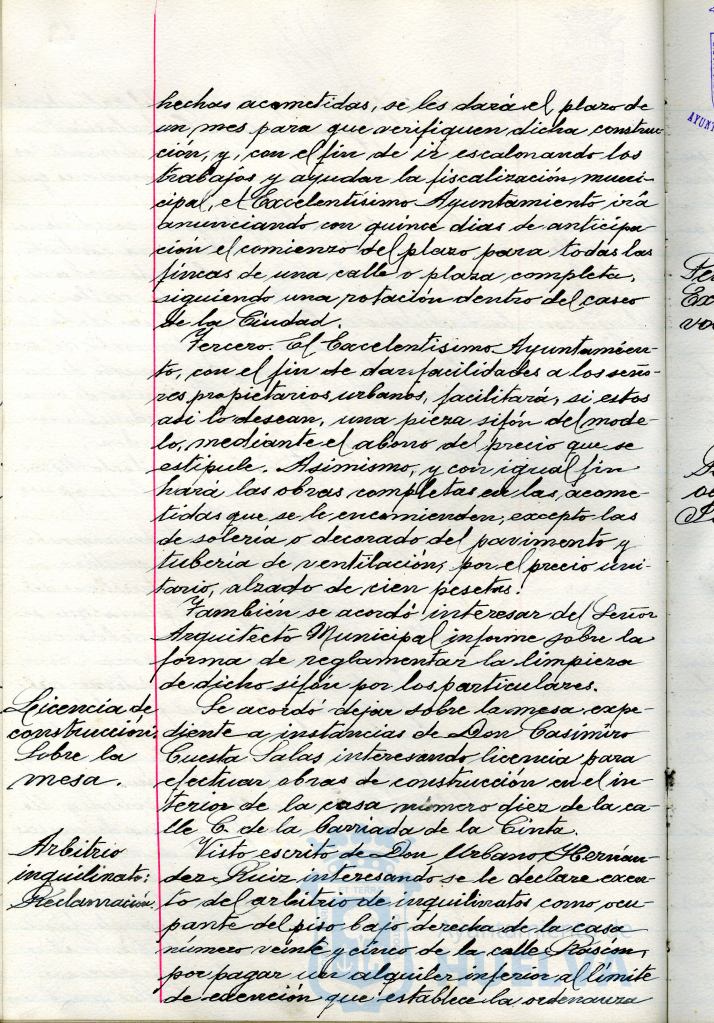 hechas acometidas, se les dará el plazo de
un mes para que verifiquen dicha construc-
ción, y, con el fin de ir escalonando los
trabajos y ayudar la fiscalización muni-
cipal, el Excelentísimo Ayuntamiento irá
anunciando con quince dias de anticipa-
ción el comienzo del plazo para todas las
fincas de una calle o plaza completa,
siguiendo una rotación dentro del casco
de la Ciudad.
Tercero. El Excelentisimo Ayuntamien-
to, con el fin de dar facilidades a los seño-
res propietarios urbanos, facilitará, si estos
asi lo desean, una pieza sifón del mode-
lo, mediante el abono del precio que se
estipule. Asimismo, y con igual fin
hará las obras completas en las acome-
tidas que se le encomienden, excepto las
de solería o decorado del pavimento y
tubería de ventilación, por el precio uni-
tario, alzado de cien pesetas.
También se acordó interesar del Señor
Arquitecto Municipal informe sobre la
forma de reglamentar la limpieza
de dicho sifón por los particulares.
Licencia de
construcción.
Sobre la
mesa.
Se acordó dejar sobre la mesa expe-
diente a instancias de Don Casimiro
Cuesta Salas interesando licencia para
efectuar obras de construcción en el in-
terior de la casa número diez de la ca-
lle C. de la Barriada de la Cinta.
Arbitrio
inquilinato:
Reclamación.
Visto escrito de Don Urbano Hernán-
dez Ruiz interesando se le declare exen-
to del arbitrio de inquilinatos como ocu-
pante del piso bajo derecha de la casa
número veinte y cinco de la calle Rascón,
por pagar un alquiler inferior al límite
de exención que establece la ordenanza
Ayuntamiento de
HUELVA
ET TERRA